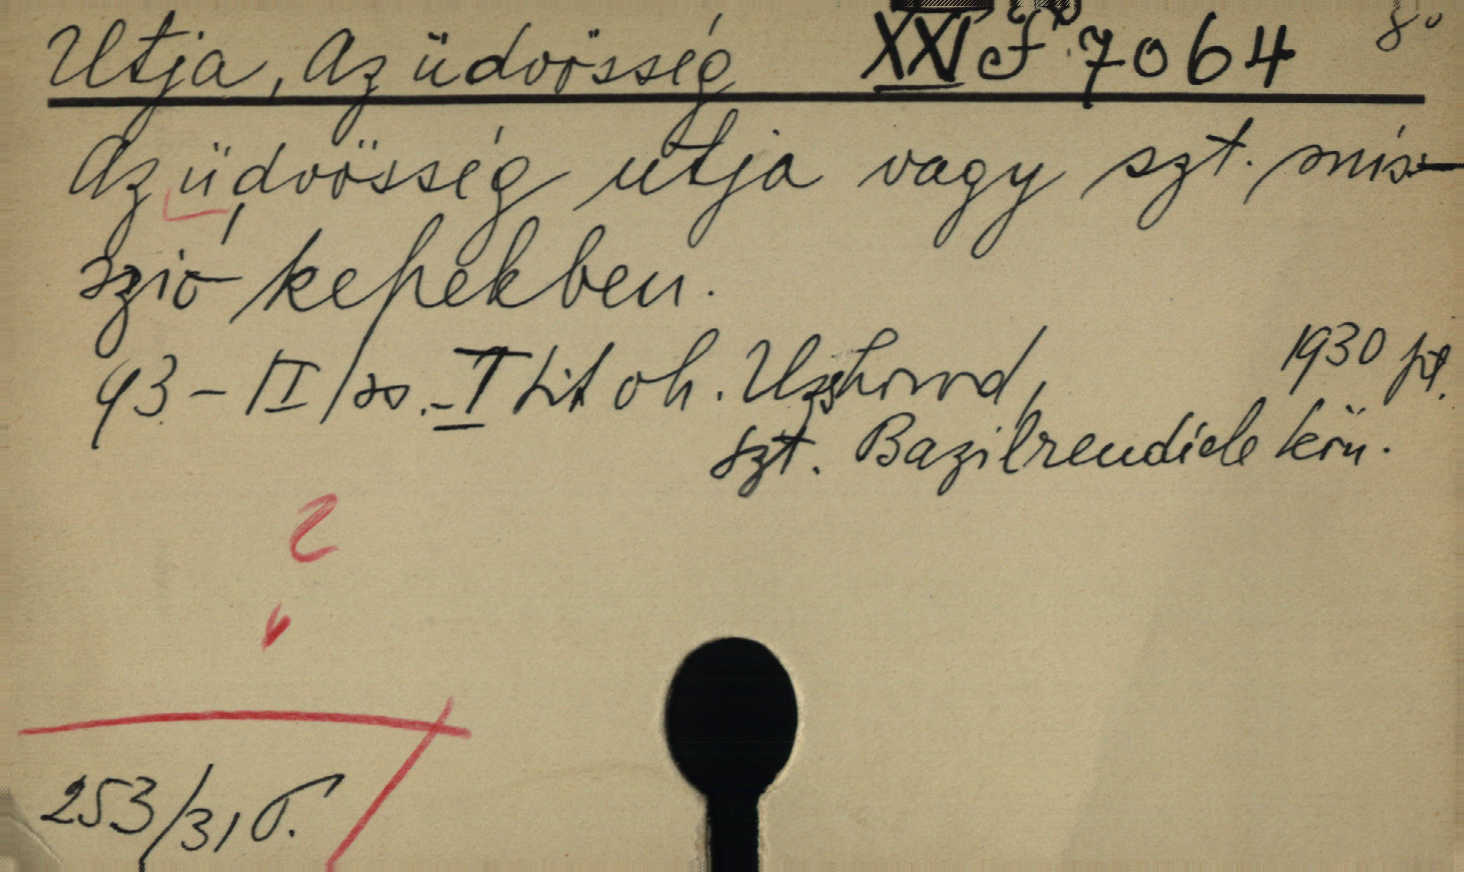 Utja, Az üdvösség XXV F 7064 8°
Az üdvösség utja vagy szt. mis-
szió képekben.
93 - II / so. - I tit oh. Uzshorod, 1930
szt. Bazilrendiek kön.
253/31 б.